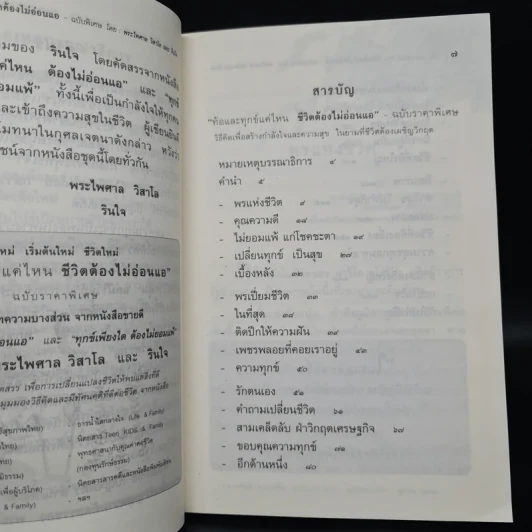 ต้องไม่อ่อนแอ - ฉบับพิเศษ โดย : พระไพศาล วิสาโล และ
รินใจ โดยคัดสรรจากหนังสือ
แค่ไหน ต้องไม่อ่อนแอ" และ
ทั้งนี้เพื่อเป็นกำลังใจให้ทุกคน
และเข้าถึงความสุขในชีวิต
โมทนาในกุศลเจตนาดังกล่าว
จากหนังสือชุดนี้โดยทั่วกัน
พระไพศาล วิสาโล
รินใจ
เริ่มต้นใหม่ ชีวิตใหม่
แค่ไหน ชีวิตต้องไม่อ่อนแอ"
ฉบับราคาพิเศษ
บทความบางส่วน จากหนังสือขายดี
และ "ทุกข์เพียงใด ต้องไม่ยอมแพ้"
พระไพศาล วิสาโล และ รินใจ
เพื่อการเปลี่ยนแปลงชีวิตให้พบแต่สิ่งที่ดี
๗
สารบัญ
"ท้อและทุกข์แค่ไหน ชีวิตต้องไม่อ่อนแอ" - ฉบับราคาพิเศษ
วิธีคิดเพื่อสร้างกำลังใจและความสุข ในยามที่ชีวิตต้องเผชิญวิกฤต
หมายเหตุบรรณาธิการ ๔
คำนำ ๕
- พรแห่งชีวิต ๙
- คุณความดี ๑๔
- ไม่ยอมแพ้ แก่โชคชะตา ๑๙
- เปลี่ยนทุกข์ เป็นสุข ๒๗
- เบื้องหลัง ๓๑
- พรเปี่ยมชีวิต ๓๓
- ในที่สุด ๓๘
- ติดปีกให้ความฝัน ๓๙
- เพชรพลอยที่คอยเราอยู่ ๔๓
- ความทุกข์ ๕๐
- รักตนเอง ๕๑
- คำถามเปลี่ยนชีวิต ๖๑
- สามเคล็ดลับ ฝ่าวิกฤตเศรษฐกิจ ๖๗
- ขอบคุณความทุกข์ ๗๑
- อีกด้านหนึ่ง ๘๐